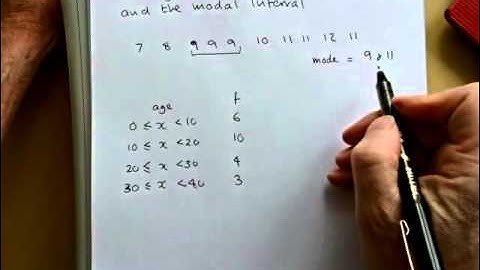 and the modal interval
7 8 9 9 9 10 11 11 12 11
mode = 9 & 11
age f
0 ≤ x < 10 6
10 ≤ x < 20 10
20 ≤ x < 30 4
30 ≤ x < 40 3